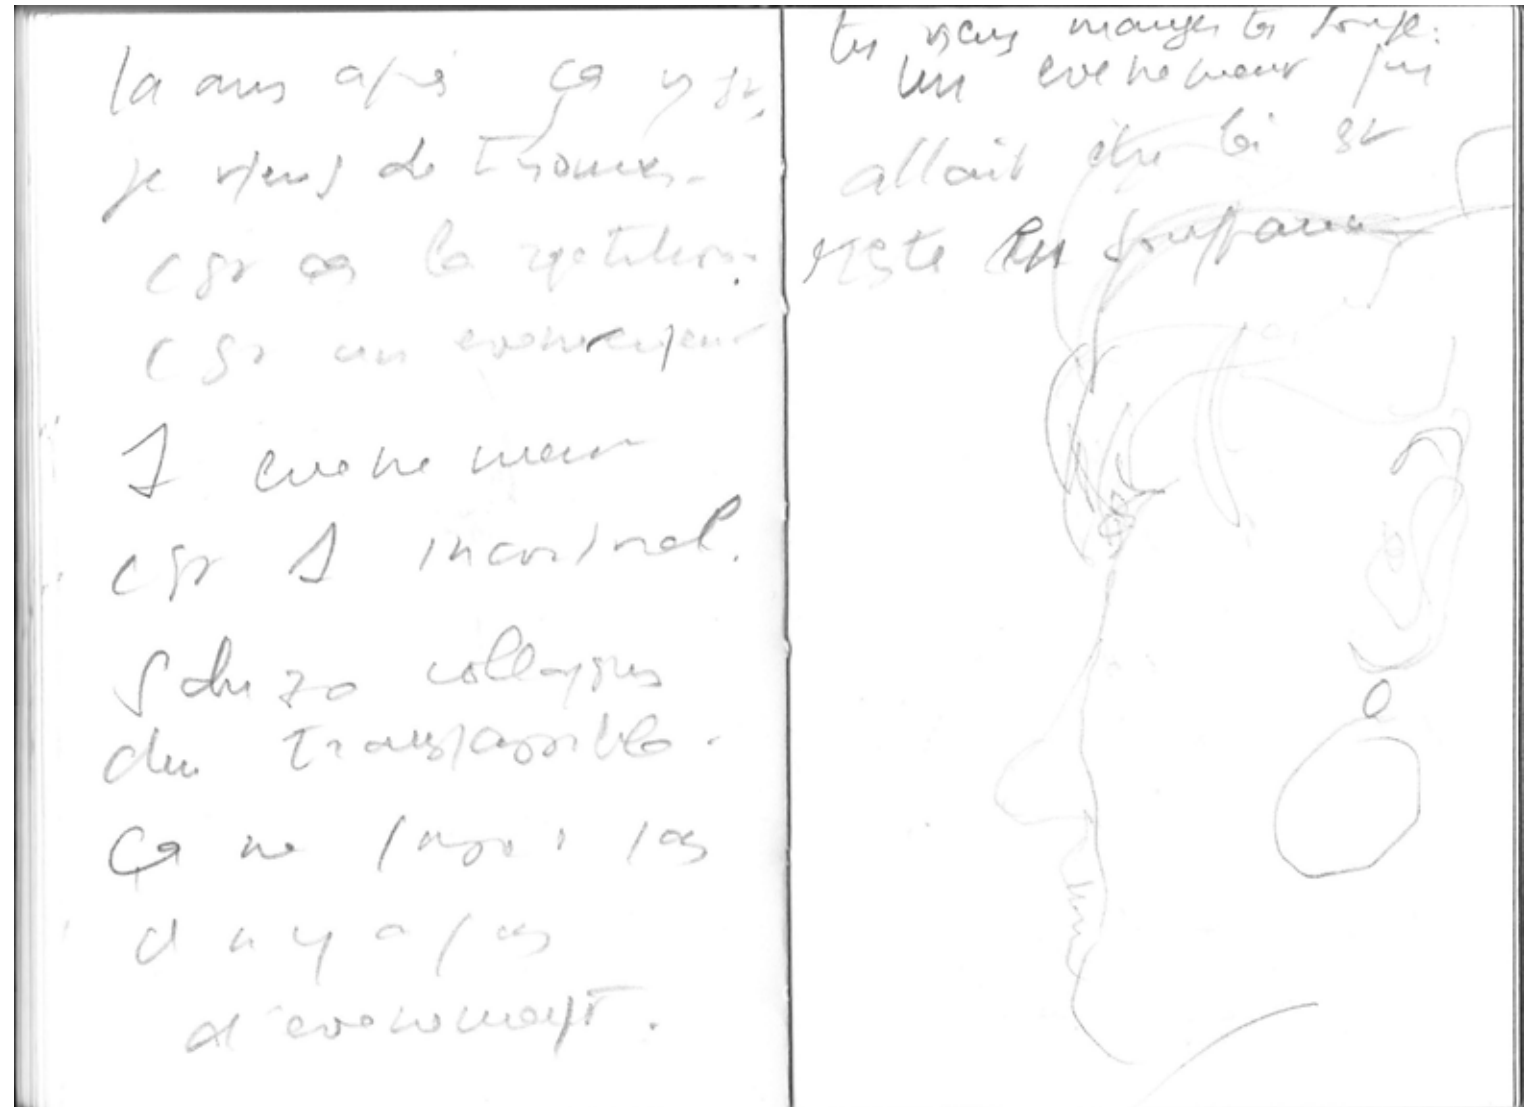 ans après ça y est,
je viens de trouver.
c est pas la répétition.
c est un evenement
1 evenement
c est 1
Schizo collapsus
du transpassible.
ça ne pas
il n y a pas
d'evenement.
tu viens manger ta soupe.
un evenement qui
allait etre la est
reste en souffrance